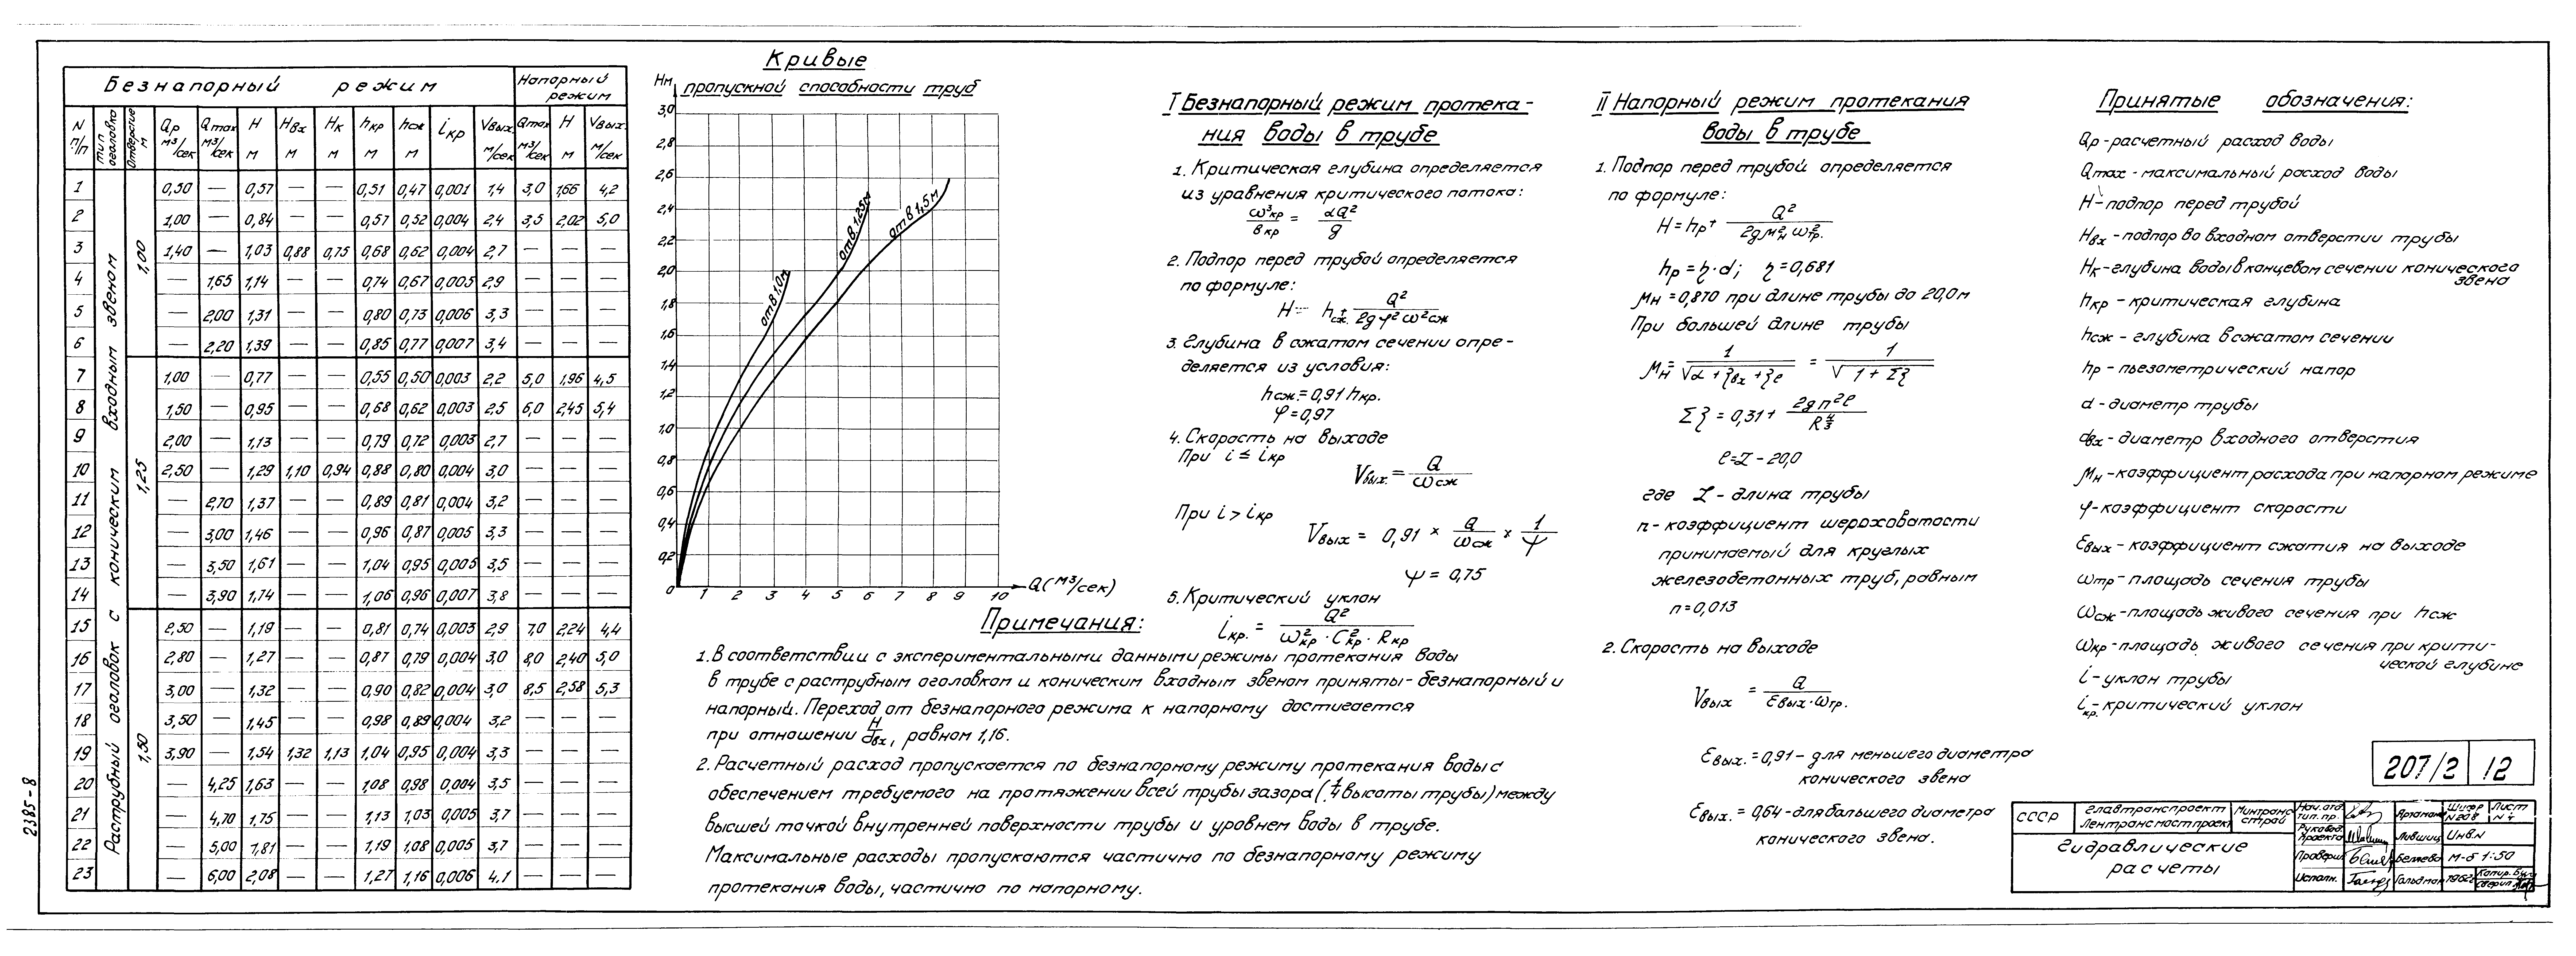 Безнапорный режим
Напорный режим
N п/п | Тип оголовка | Отверстие м | Qр м³/сек | Qmax м³/сек | H м | Hвх м | Hк м | hкр м | hсж м | iкр | Vвых. м/сек | Qmax м³/сек | H м | Vвых. м/сек
Раструбный оголовок с коническим входным звеном
1,00
1 | 0,50 | — | 0,57 | — | — | 0,51 | 0,47 | 0,001 | 1,4 | 3,0 | 1,66 | 4,2
2 | 1,00 | — | 0,84 | — | — | 0,57 | 0,52 | 0,004 | 2,4 | 3,5 | 2,02 | 5,0
3 | 1,40 | — | 1,03 | 0,88 | 0,75 | 0,68 | 0,62 | 0,004 | 2,7 | — | — | —
4 | — | 1,65 | 1,14 | — | — | 0,74 | 0,67 | 0,005 | 2,9 | — | — | —
5 | — | 2,00 | 1,31 | — | — | 0,80 | 0,73 | 0,006 | 3,3 | — | — | —
6 | — | 2,20 | 1,39 | — | — | 0,85 | 0,77 | 0,007 | 3,4 | — | — | —
1,25
7 | 1,00 | — | 0,77 | — | — | 0,55 | 0,50 | 0,003 | 2,2 | 5,0 | 1,96 | 4,5
8 | 1,50 | — | 0,95 | — | — | 0,68 | 0,62 | 0,003 | 2,5 | 6,0 | 2,45 | 5,4
9 | 2,00 | — | 1,13 | — | — | 0,79 | 0,72 | 0,003 | 2,7 | — | — | —
10 | 2,50 | — | 1,29 | 1,10 | 0,94 | 0,88 | 0,80 | 0,004 | 3,0 | — | — | —
11 | — | 2,70 | 1,37 | — | — | 0,89 | 0,81 | 0,004 | 3,2 | — | — | —
12 | — | 3,00 | 1,46 | — | — | 0,96 | 0,87 | 0,005 | 3,3 | — | — | —
13 | — | 3,50 | 1,61 | — | — | 1,04 | 0,95 | 0,005 | 3,5 | — | — | —
14 | — | 3,90 | 1,74 | — | — | 1,06 | 0,96 | 0,007 | 3,8 | — | — | —
1,50
15 | 2,50 | — | 1,19 | — | — | 0,81 | 0,74 | 0,003 | 2,9 | 7,0 | 2,24 | 4,4
16 | 2,80 | — | 1,27 | — | — | 0,87 | 0,79 | 0,004 | 3,0 | 8,0 | 2,40 | 5,0
17 | 3,00 | — | 1,32 | — | — | 0,90 | 0,82 | 0,004 | 3,0 | 8,5 | 2,58 | 5,3
18 | 3,50 | — | 1,45 | — | — | 0,98 | 0,89 | 0,004 | 3,2 | — | — | —
19 | 3,90 | — | 1,54 | 1,32 | 1,13 | 1,04 | 0,95 | 0,004 | 3,3 | — | — | —
20 | — | 4,25 | 1,63 | — | — | 1,08 | 0,98 | 0,004 | 3,5 | — | — | —
21 | — | 4,70 | 1,75 | — | — | 1,13 | 1,03 | 0,005 | 3,7 | — | — | —
22 | — | 5,00 | 1,81 | — | — | 1,19 | 1,08 | 0,005 | 3,7 | — | — | —
23 | — | 6,00 | 2,08 | — | — | 1,27 | 1,16 | 0,006 | 4,1 | — | — | —
2385-8
Кривые
пропускной способности труб
Hм
3,0
2,8
2,6
2,4
2,2
2,0
1,8
1,6
1,4
1,2
1,0
0,8
0,6
0,4
0,2
0 1 2 3 4 5 6 7 8 9 10 Q(м³/сек)
отв 1,0м
отв 1,25м
отв 1,5м
Примечания:
1. В соответствии с экспериментальными данными режимы протекания воды
в трубе с раструбным оголовком и коническим входным звеном приняты - безнапорный и
напорный. Переход от безнапорного режима к напорному достигается
при отношении H/dвх, равном 1,16.
2. Расчетный расход пропускается по безнапорному режиму протекания воды с
обеспечением требуемого на протяжении всей трубы зазора (1/4 высоты трубы) между
высшей точкой внутренней поверхности трубы и уровнем воды в трубе.
Максимальные расходы пропускаются частично по безнапорному режиму
протекания воды, частично по напорному.
I Безнапорный режим протека-
ния воды в трубе
1. Критическая глубина определяется
из уравнения критического потока:
ω³кр / вкр = αQ² / g
2. Подпор перед трубой определяется
по формуле:
H = hсж. + Q² / 2gφ²ω²сж
3. Глубина в сжатом сечении опре-
деляется из условия:
hсж. = 0,91 hкр.
φ = 0,97
4. Скорость на выходе
При i ≤ iкр
Vвых. = Q / ωсж
При i > iкр
Vвых = 0,91 × Q / ωсж × 1 / ψ
ψ = 0,75
5. Критический уклон
iкр. = Q² / ω²кр · C²кр · Rкр
II Напорный режим протекания
воды в трубе
1. Подпор перед трубой определяется
по формуле:
H = hр + Q² / 2gμ²н ω²тр.
hр = η·d; η = 0,681
μн = 0,870 при длине трубы до 20,0м
При большей длине трубы
μн = 1 / √α + ξвх + ξℓ = 1 / √1 + Σξ
Σξ = 0,31 + 2gn²ℓ / R^4/3
ℓ = L - 20,0
где L - длина трубы
n - коэффициент шероховатости
принимаемый для круглых
железобетонных труб, равным
n = 0,013
2. Скорость на выходе
Vвых = Q / Евых · ωтр.
Евых. = 0,91 - для меньшего диаметра
конического звена
Евых. = 0,64 - для большего диаметра
конического звена.
Принятые обозначения:
Qр - расчетный расход воды
Qmax - максимальный расход воды
H - подпор перед трубой
Hвх - подпор во входном отверстии трубы
Hк - глубина воды в концевом сечении конического
звена
hкр - критическая глубина
hсж - глубина в сжатом сечении
hр - пьезометрический напор
d - диаметр трубы
dвх - диаметр входного отверстия
μн - коэффициент расхода при напорном режиме
φ - коэффициент скорости
Евых - коэффициент сжатия на выходе
ωтр - площадь сечения трубы
ωсж - площадь живого сечения при hсж
ωкр - площадь живого сечения при крити-
ческой глубине
i - уклон трубы
iкр. - критический уклон
207/2 | 12
СССР | Главтранспроект Лентрансмостпроект | Минтрансстрой
Гидравлические
расчеты
Нач. отд. тип. пр.
Руковод. проекта | Лившиц
Проверил | Беляева
Исполн. | Гольдман
Шифр N 208 | Лист N 4
Инв.N
М-б 1:50
1962г